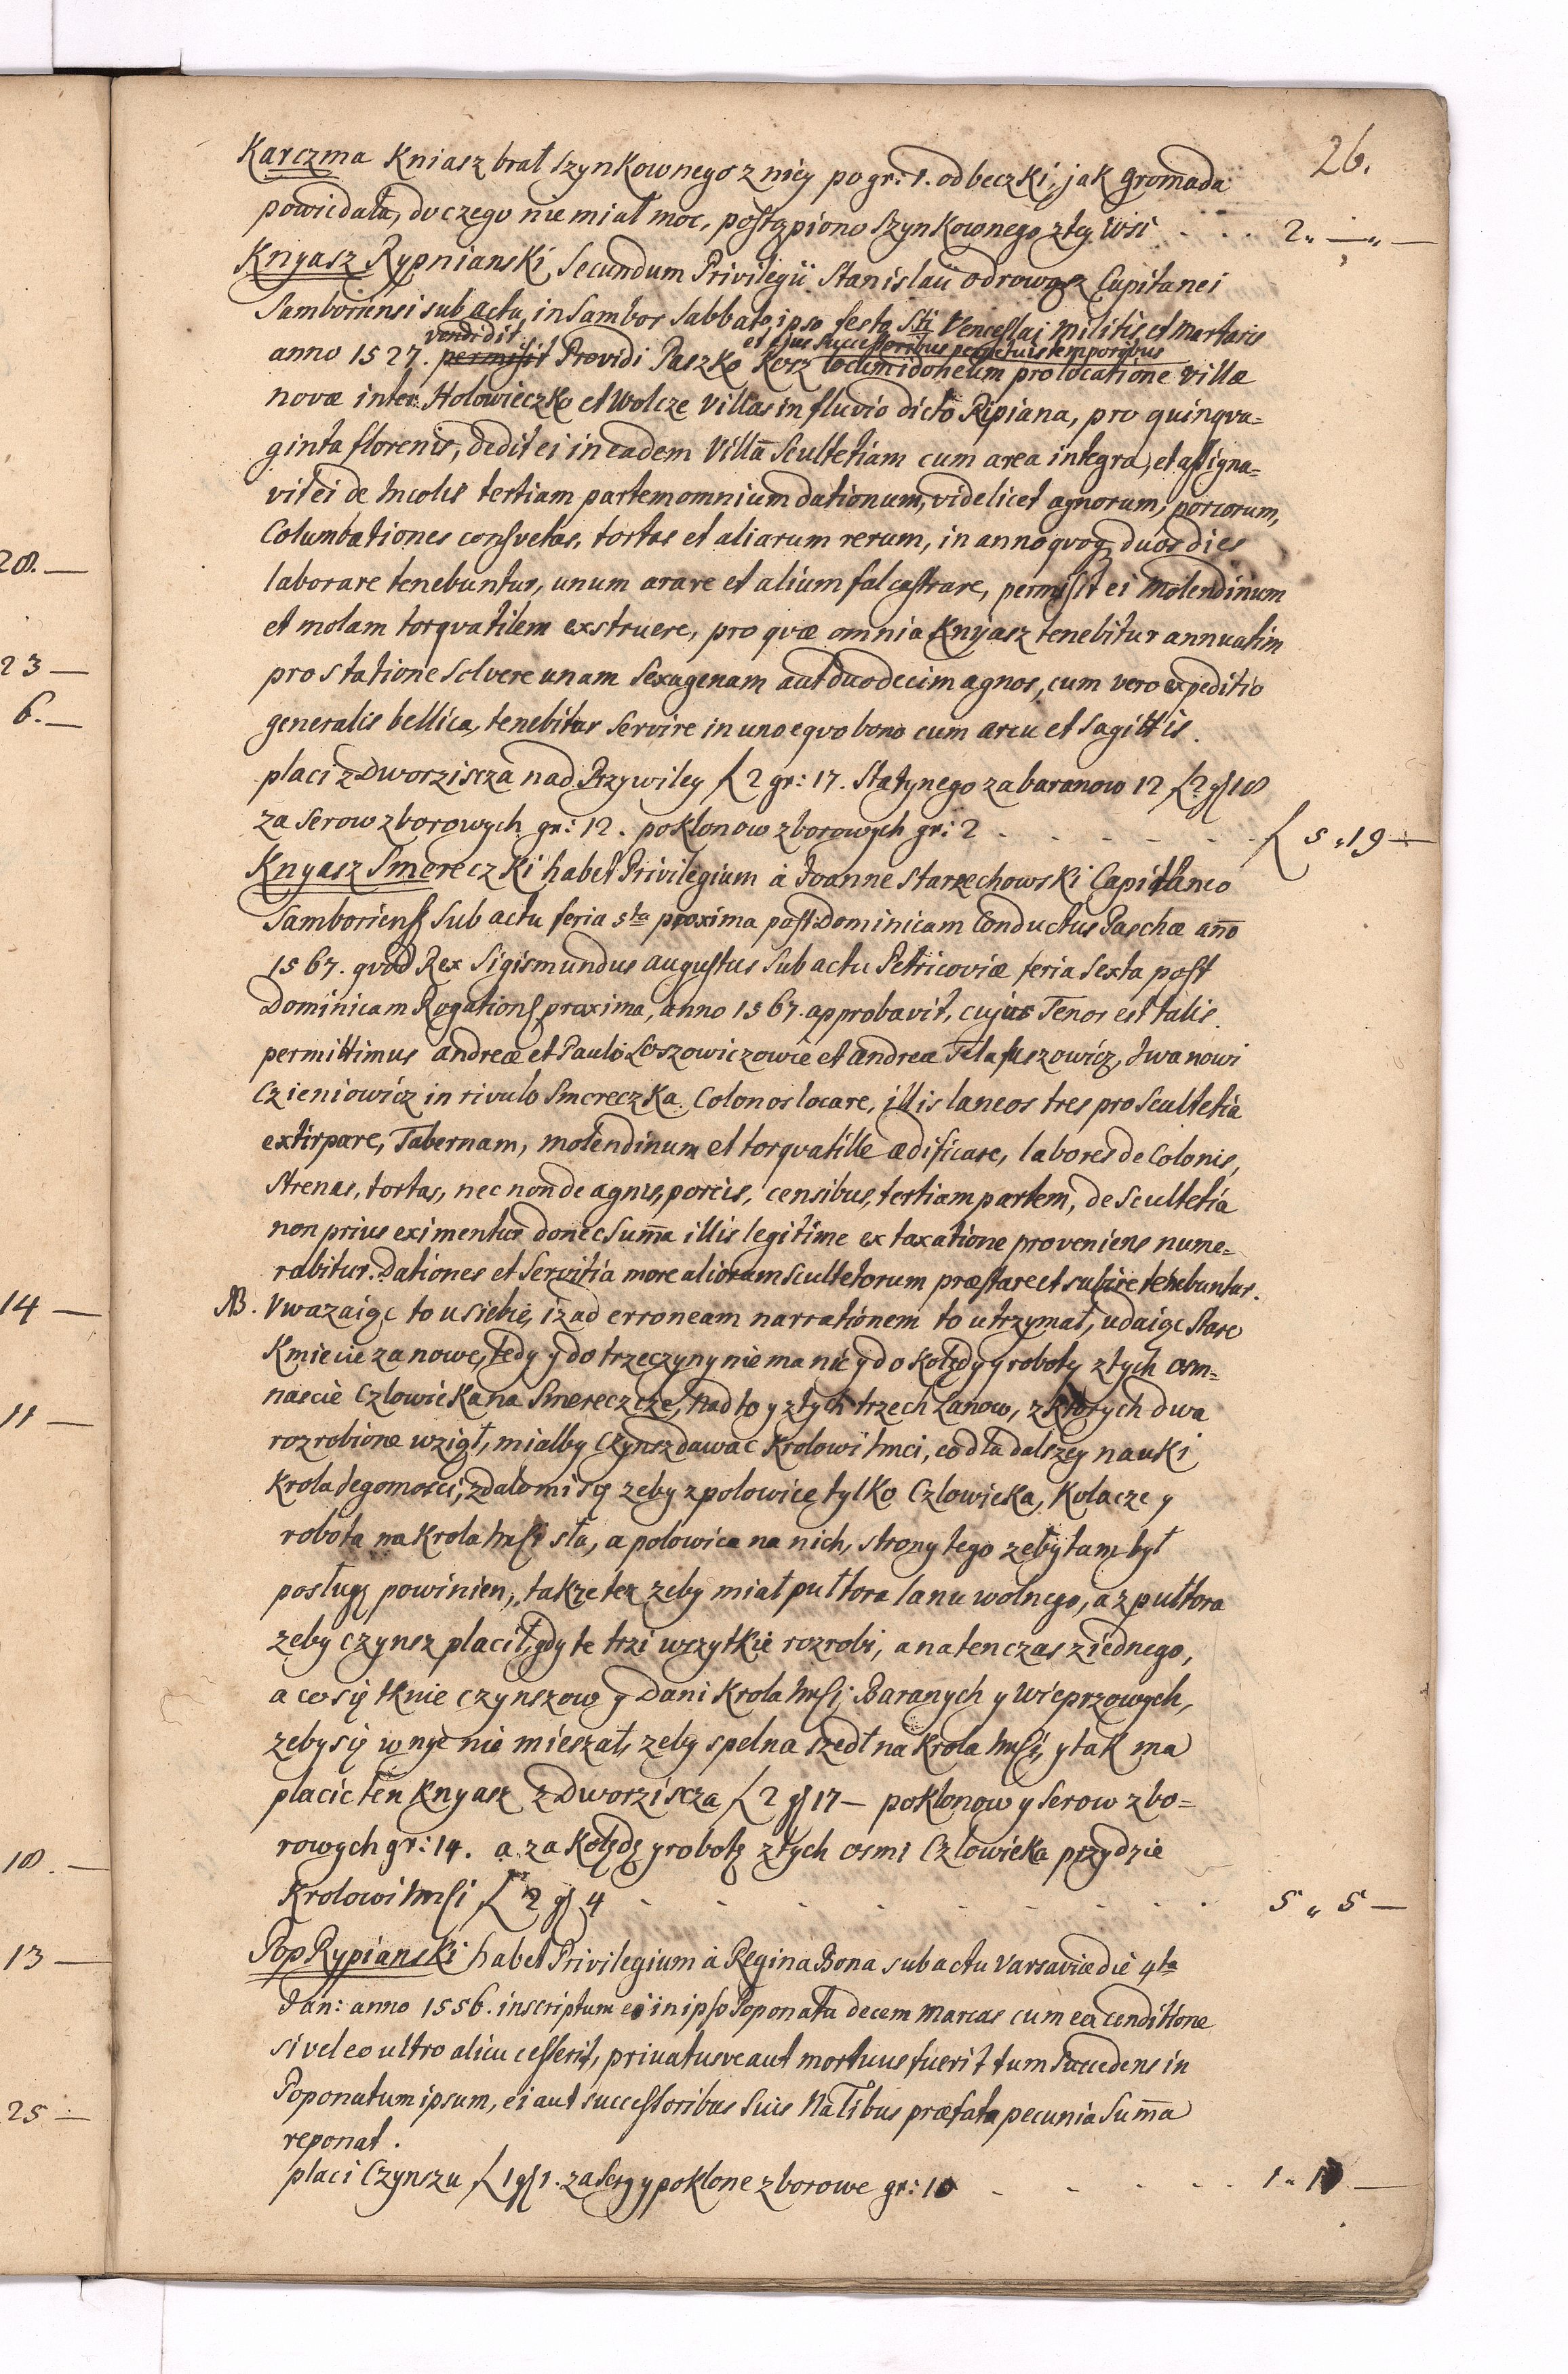 26.
Karczma Kniasz brał szynkownego z niey po gr: 1. od beczki, jak gromada
powiedała, do czego nie miał moc, postąpiono szynkownego z tey wsi . . . 2 „ — „ —
Knyasz Rypnianski, Secundum Privilegii Stanislai Odrowąsz Capitanei
Samboriensi sub actu in Sambor Sabbato ipso festo Sti Venceslai militis et martaris
vendidit et ejus successoribus perpetuis temporibus
anno 1527. permisit Providi Paszko Kosz locum idoneum pro locatione villæ
novæ inter Holowieczko et Wolcze Villas in fluvio dicto Ripiana, pro quinqva=
ginta florenis, dedit ei in eadem Villa Scultetiam cum area integra, et assigna=
vit ei de Incolis tertiam partem omnium dationum, videlicet agnorum, porcorum,
Columbationes consvetas, tortas et aliarum rerum, in anno qvoq duos dies
laborare tenebuntur, unum arare et alium falcastrare, permisit ei molendinum
et molam torqvatilem exstruere, pro qvæ omnia Knyasz tenebitur annuatim
pro statione solvere unam Sexagenam aut duodecim agnos, cum vero expeditio
generalis bellica, tenebitur servire in uno eqvo bono cum arcu et sagittis.
placi z Dworziscza nad Przywiley f 2 gr: 17. Statynego za baranow 12 f 2 g 18
za serow zborowych gr: 12. poklonow zborowych gr: 2 . . . . . . f 5 „ 19 —
Knyasz Smereczki habet Privilegium à Joanne Starzechowski Capitaneo
Samboriens sub actu feria 5ta proxima post Dominicam Conductus Paschæ año
1567. qvod Rex Sigismundus augustus sub actu Petricoviæ feria sexta post
Dominicam Rogations proxima, anno 1567. approbavit, cujus Tenor est talis.
permittimus andreæ et Paulo Loszowiczowie et andreæ Telafuszowicz, Iwanowi
Czieniowicz in rivulo Smereczka Colonos locare, illis laneos tres pro Scultetia
extirpare, Tabernam, molendinum et torqvatille ædificare, labores de Colonis,
Strenas, tortas, nec non de agnis, porcis, censibus, tertiam partem, de Scultetia
non prius eximentur donec Suma illis legitime ex taxatione proveniens nume=
rabitur. Dationes et Servitia more aliorum scultetorum præstare et subire tenebuntur.
NB. Vwazaiąc to u siebie, iz ad erroneam narrationem to utrzymał, udaiąc Stare
Kmiecie za nowe, tedy y do trzeczyny nie ma nic y do kolędy y roboty z tych osm=
nascie Czlowieka na Smereczcze, nad to y z tych trzech Lanow, z ktorych dwa
rozrobione wziął, mialby Czynsz dawac Krolowi Imci, co dla dalszey nauki
Krola Jegomosci, zdalo mi się zeby z polowice tylko Czlowieka, Kolacze y
robota na Krola Imsi sła, a polowica na nich, strony tego zeby tam był
posługę powinien, takze tez zeby miał pułtora lanu wolnego, a z pułtora
zeby czynsz placił, gdy te trzi wszytkie rozrobi, a na ten czas z iednego,
a co się tknie czynszow y Dani Krola Imsi, Baranych y Wieprzowych,
zeby się w nyc nie mieszał, zeby spelna szedł na Krola Imsi, y tak ma
placic ten Knyasz z Dworziscza f 2 g 17 — poklonow y serow zbo=
rowych gr: 14. a za kolędę y robotę z tych osmi Czlowieka przydzie
Krolowi Imsi f 2 g 4 . . . . . . . . 5 „ 5 —
Pop Rypianski habet Privilegium à Regina Bona sub actu Varsaviæ die 4ta
Jan: anno 1556. inscriptum ei in ipso Poponatu decem marcas cum ea conditione
si vel eo ultro alicui cesserit, privatusve aut mortuus fuerit tum succedens in
Poponatum ipsum, ei aut successoribus suis Natibus præfata pecunia Suma
reponat.
placi Czynszu f 1 g 1. za Sery y poklone zborowe gr: 10 . . . . . 1 „ 11 —
28. —
23 —
6. —
14 —
11 —
18. —
13 —
25 —